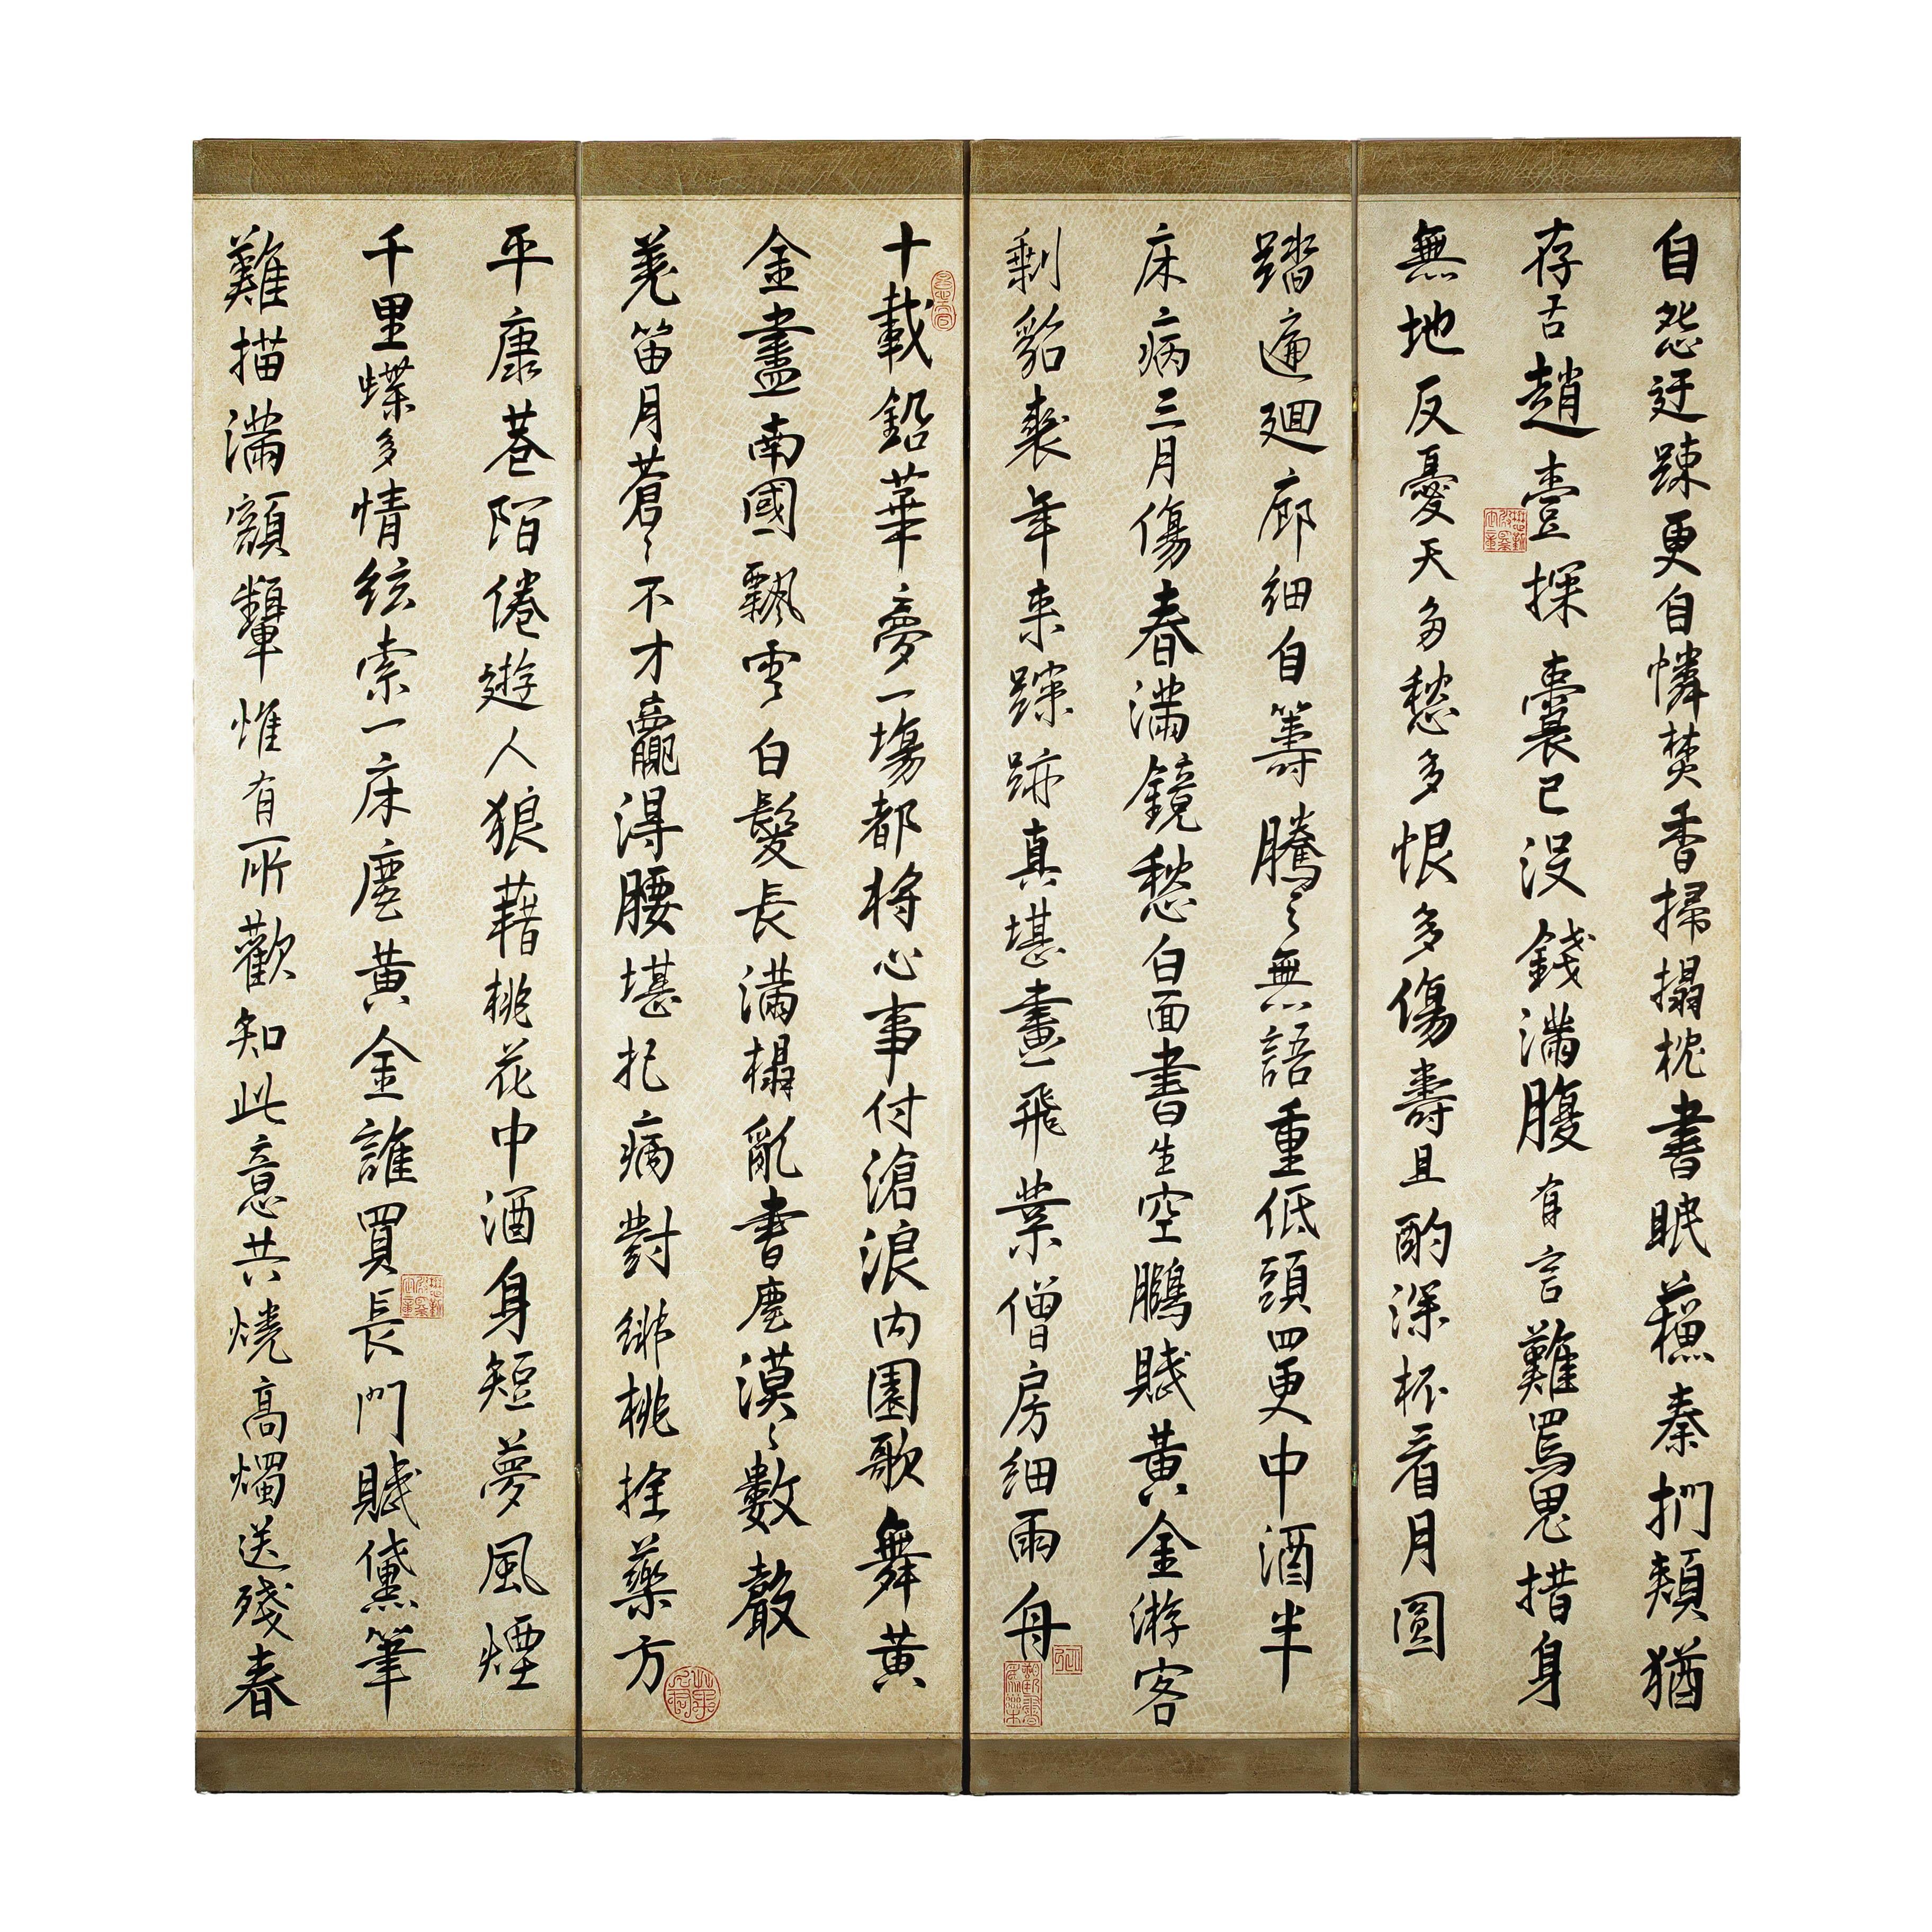 自怨迂疎更自憐焚香掃搨枕書眠蘓秦捫頰猶
存舌趙壹探囊已没錢滿腹有言難罵鬼措身
無地反憂天多愁多恨多傷壽且酌深杯看月圓
踏遍廻廊細自籌騰〻無語重低頭四更中酒半
床病三月傷春滿鏡愁白面書生空鵬賦黃金游客
剩貂裘年来蹤跡真堪畫一飛業僧房細雨舟
十載鉛華夢一塲都将心事付滄浪内園歌舞黃
金盡南國飄零白髮長滿榻亂書塵漠〻數聲
羌笛月蒼〻不才贏得腰堪把病對緋桃拴藥方
平康巷陌倦遊人狼藉桃花中酒身短夢風煙
千里蝶多情絃索一床塵黃金誰買長門賦黛筆
難描滿額顰惟有所歡知此意共燒高燭送殘春